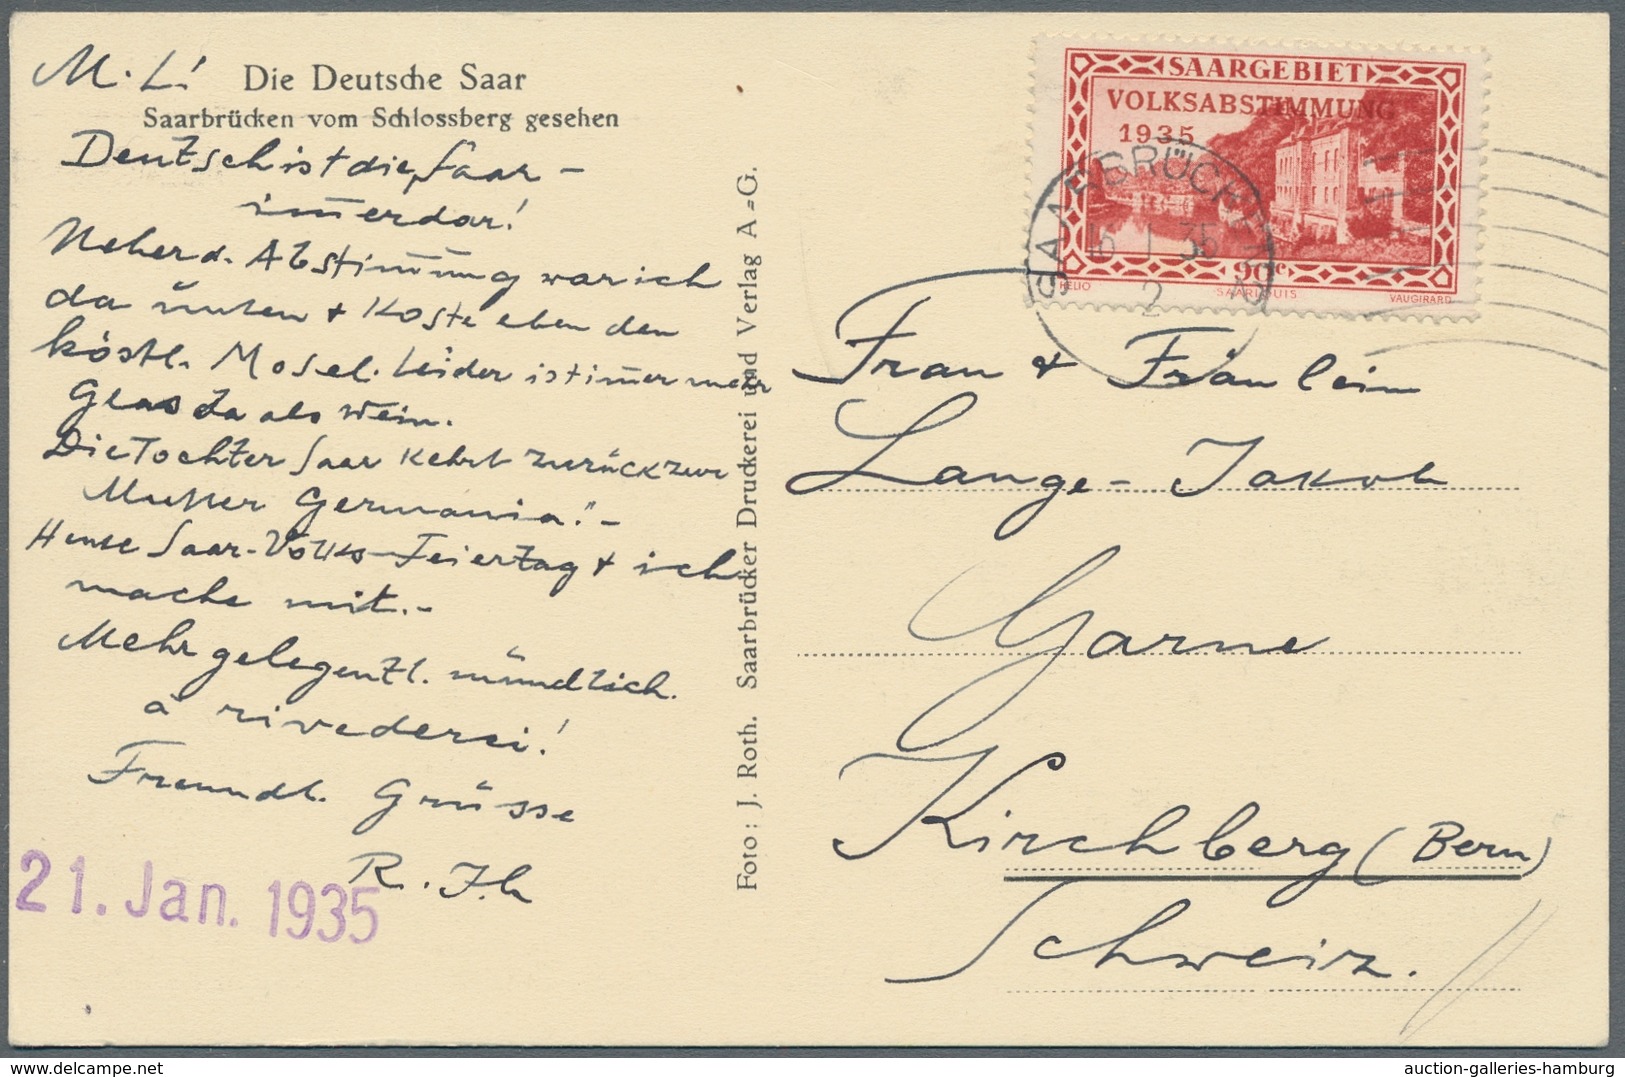 M. L!
Die Deutsche Saar
Saarbrücken vom Schlossberg gesehen
Deutsch ist die Saar –
im̅erdar!
d. Abstim̅ung war ich
da unten + koste eben den
köstl. Mosel. Leider ist im̅er mehr
Glas da als Wein.
Die Tochter Saar kehrt zurück zur
Mutter Germania! –
Heute Saar-Volks-Feiertag + ich
mache mit. –
Mehr gelegentl. mündlich.
a rivederci!
Freundl. Grüsse
R.
21. Jan. 1935
Foto: J. Roth. Saarbrücker Druckerei und Verlag A=G.
SAARGEBIET
VOLKSABSTIMMUNG
1935
90c
HELIO SAARLOUIS VAUGIRARD
SAARBRÜCKEN 2
15 1 35
2
Frau + Fräulein
Lange-Jakob
Garne
Kirchberg (Bern)
Schweiz.
auction-galleries-hamburg